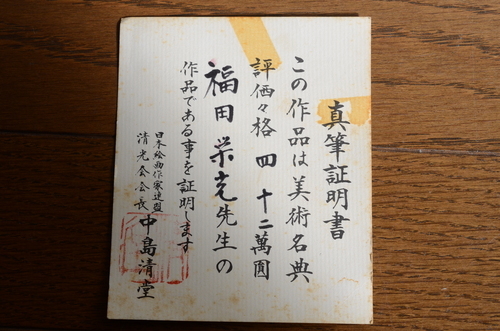 真筆証明書
この作品は美術名典
評価々格 四十二萬圓
福田栄光先生の
作品である事を証明します
日本絵画作家連盟
清光会会長 中島清堂